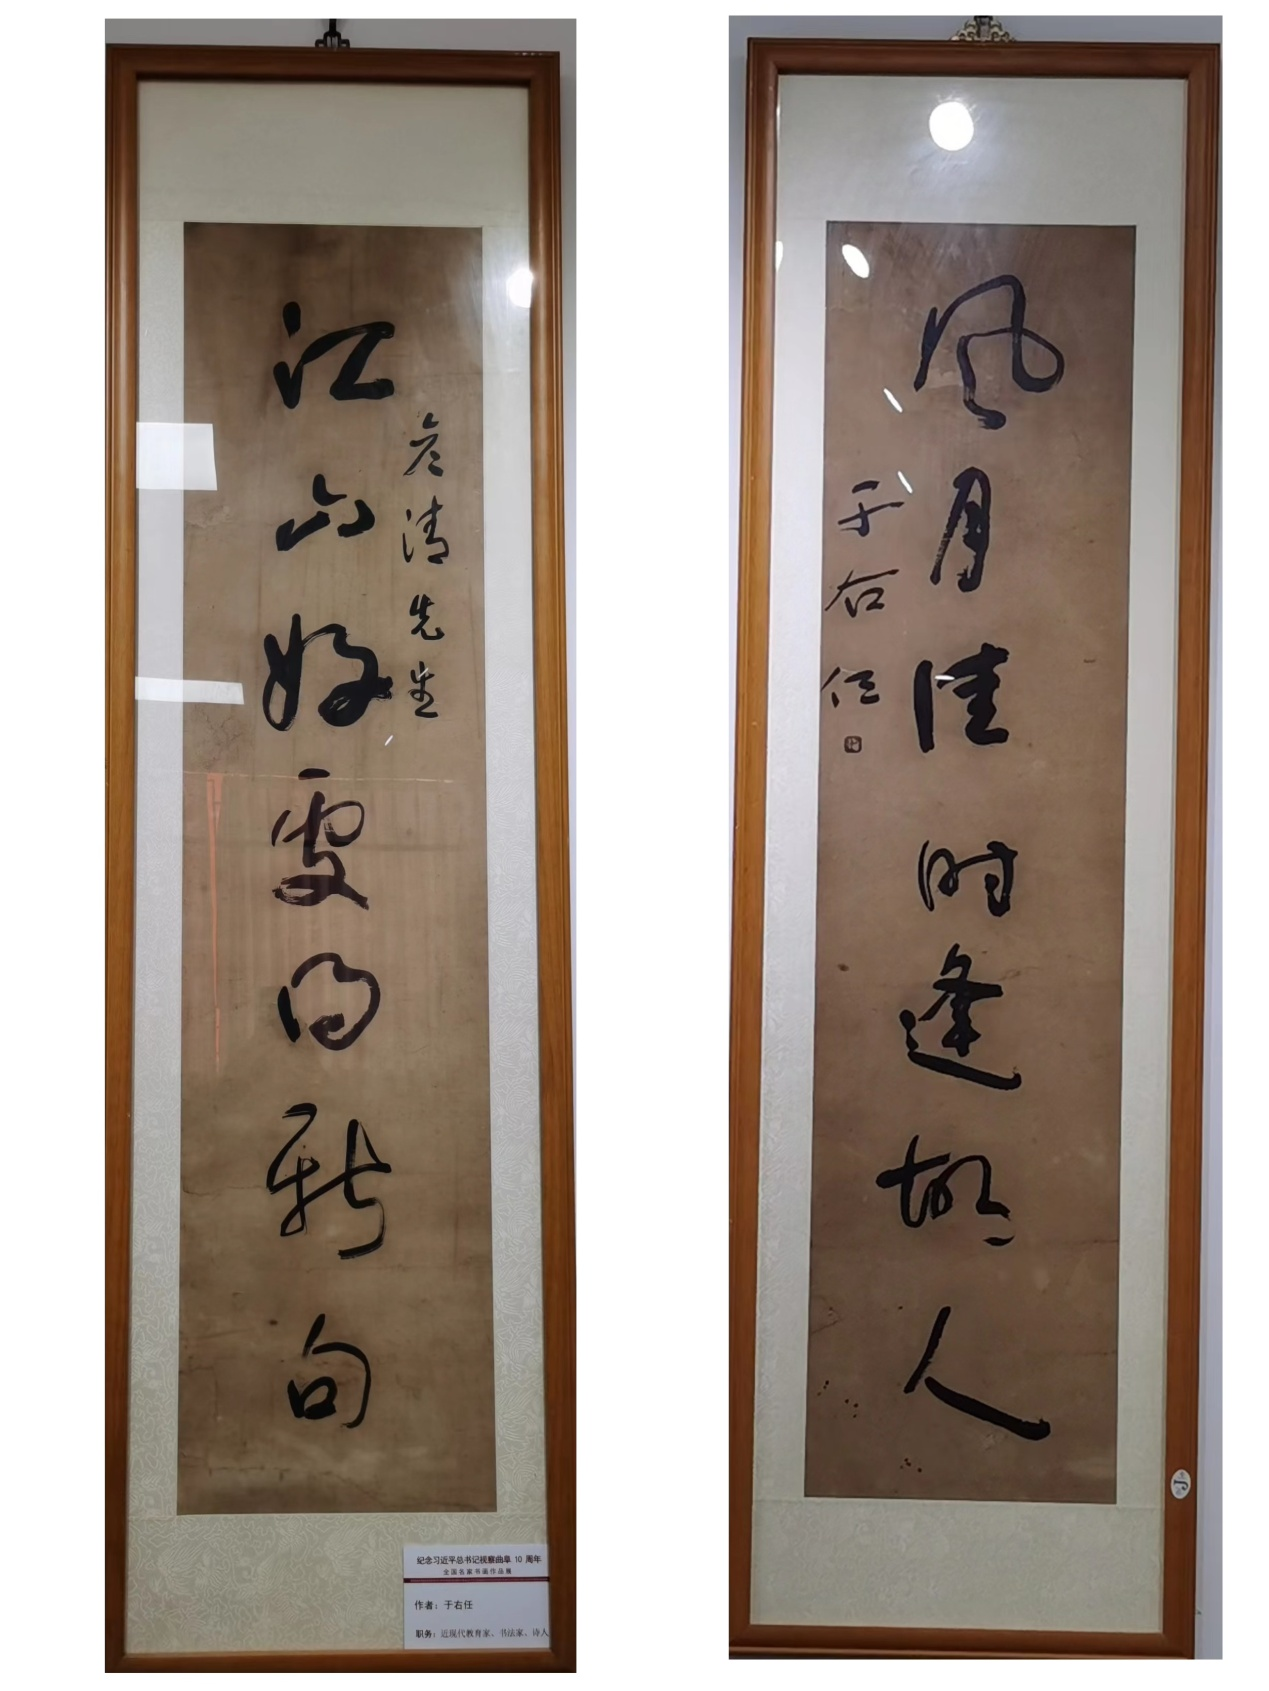 江山好处得新句
彦清先生
纪念习近平总书记视察曲阜 10 周年
全国名家书画作品展
作者：于右任
职务：近现代教育家、书法家、诗人
风月佳时逢故人
于右任